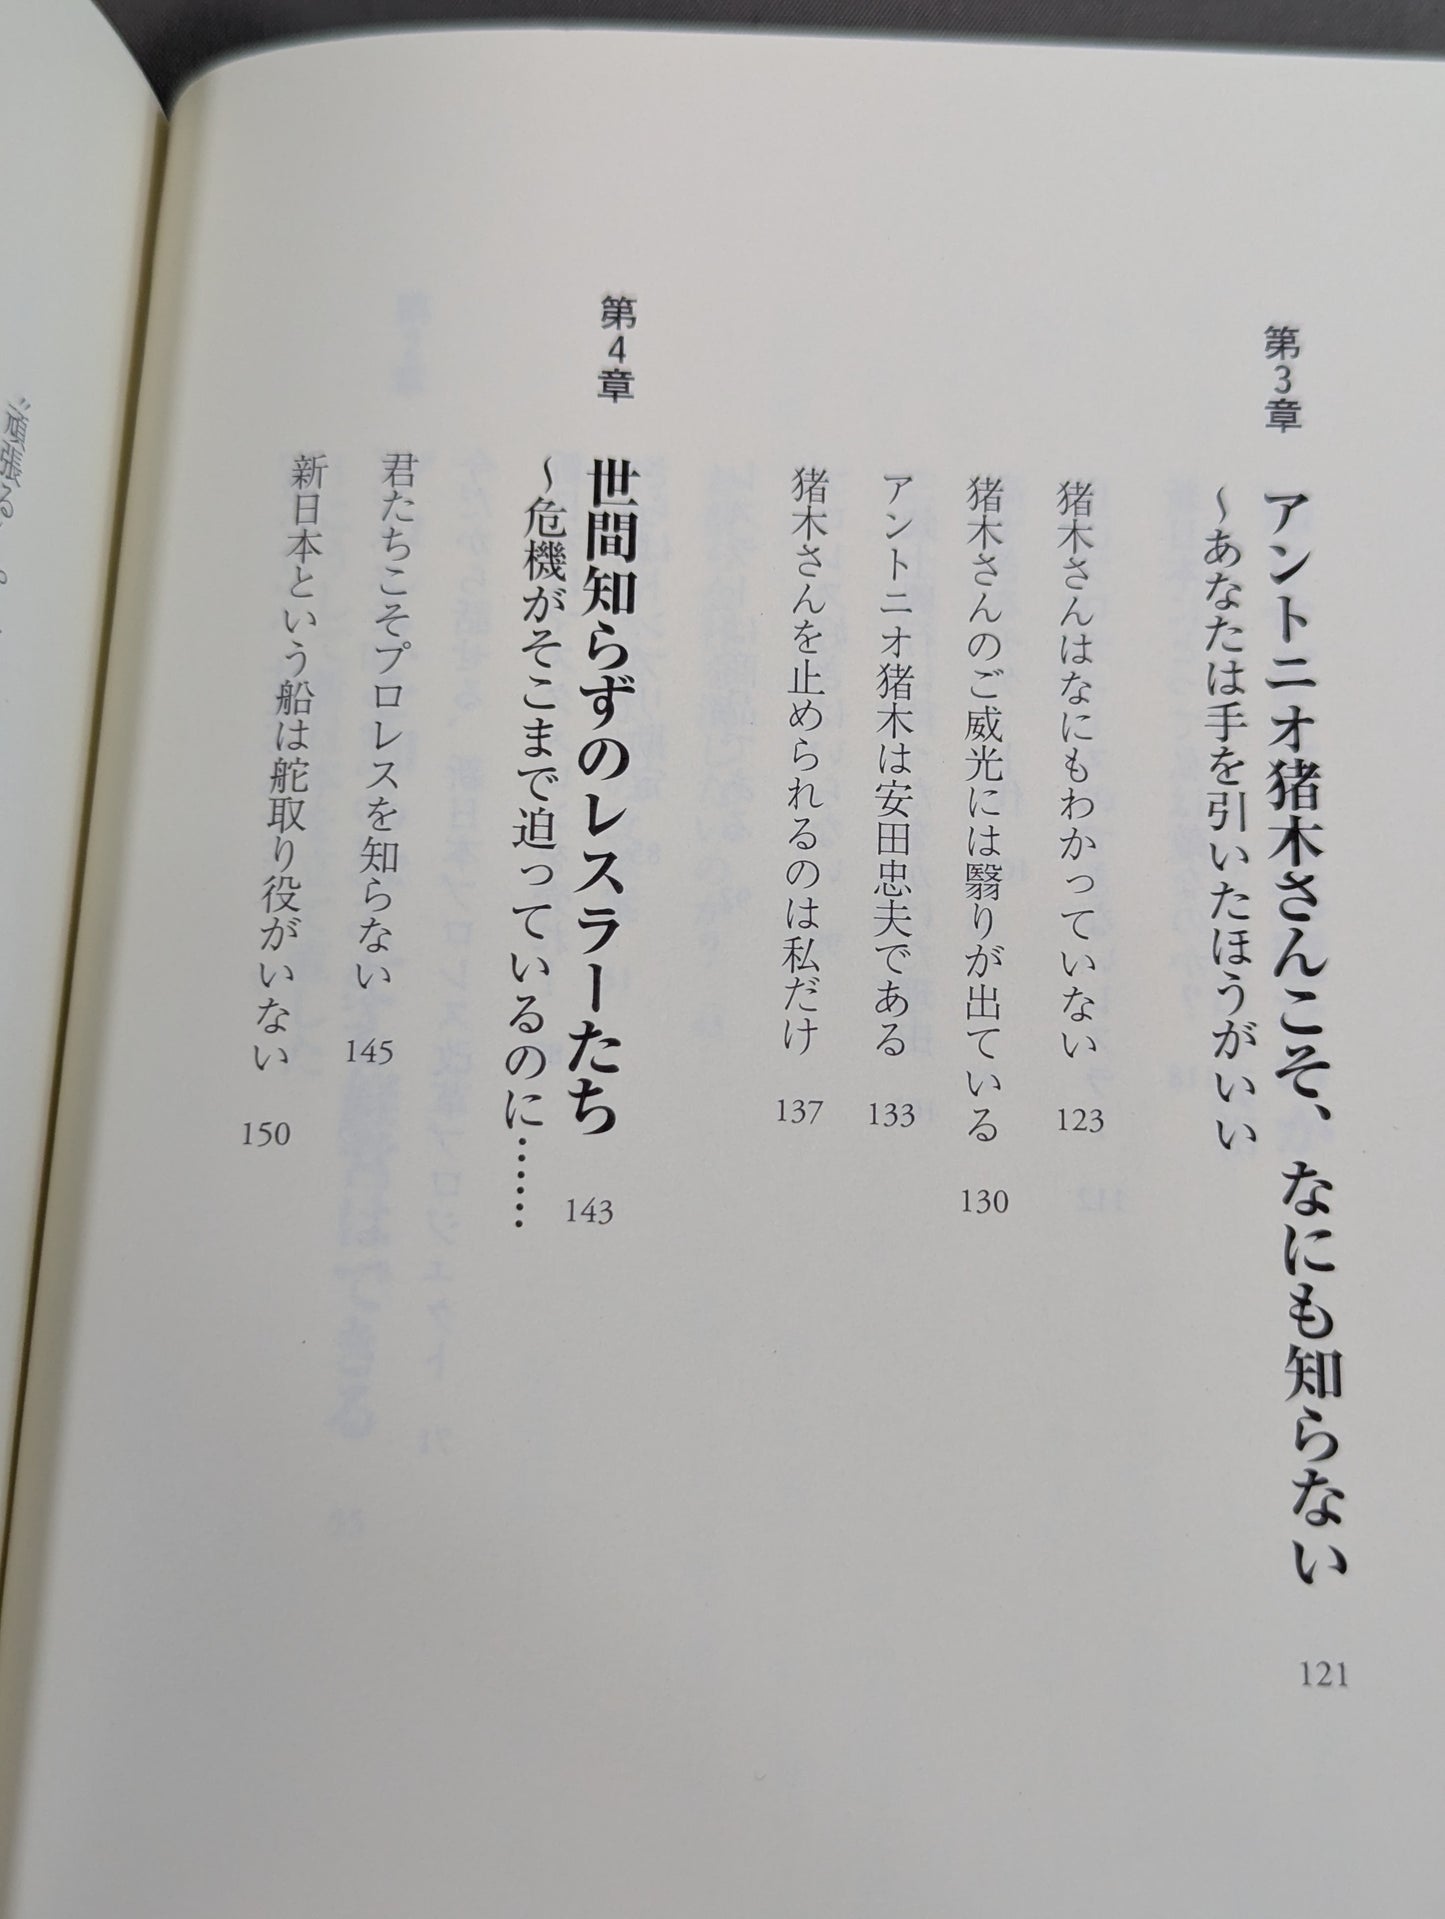 第3章
アントニオ猪木さんこそ、なにも知らない
121
〜あなたは手を引いたほうがいい
猪木さんはなにもわかっていない
123
猪木さんのご威光には翳りが出ている
130
アントニオ猪木は安田忠夫である
133
猪木さんを止められるのは私だけ
137
第4章
世間知らずのレスラーたち
143
〜危機がそこまで迫っているのに……
君たちこそプロレスを知らない
145
新日本という船は舵取り役がいない
150
〝頑張る